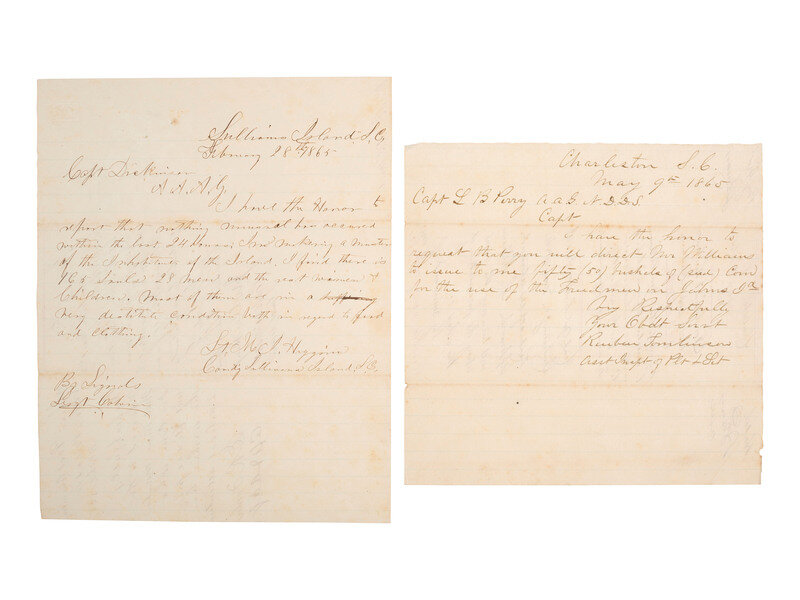 Sullivans Island, S.C,
February 28th 1865
Capt Dickinson
A. A. A. G.
I have the Honor to
report that nothing unusual has occured
within the last 24 hours, I am making a
of the Inhabitants of the Island. I find there is
165 Souls. 28 men and the rest women &
Children. Most of them are in a
very destitute condition both in regard to food
and clothing.
J. Higgins
Comdg Sullivans Island, S.C,
By Signals
Sergt
Charleston S. C.
May 9th 1865
Capt L B Perry A A G N D D S
Capt
I have the honor to
request that you will direct Mr Williams
to issue to me fifty (50) bushels of (seed) Corn
for the use of the Freedmen on Johns Id
Very Respectfully
Your Obdt Servt
Reuben Tomlinson
Asst Inspt of